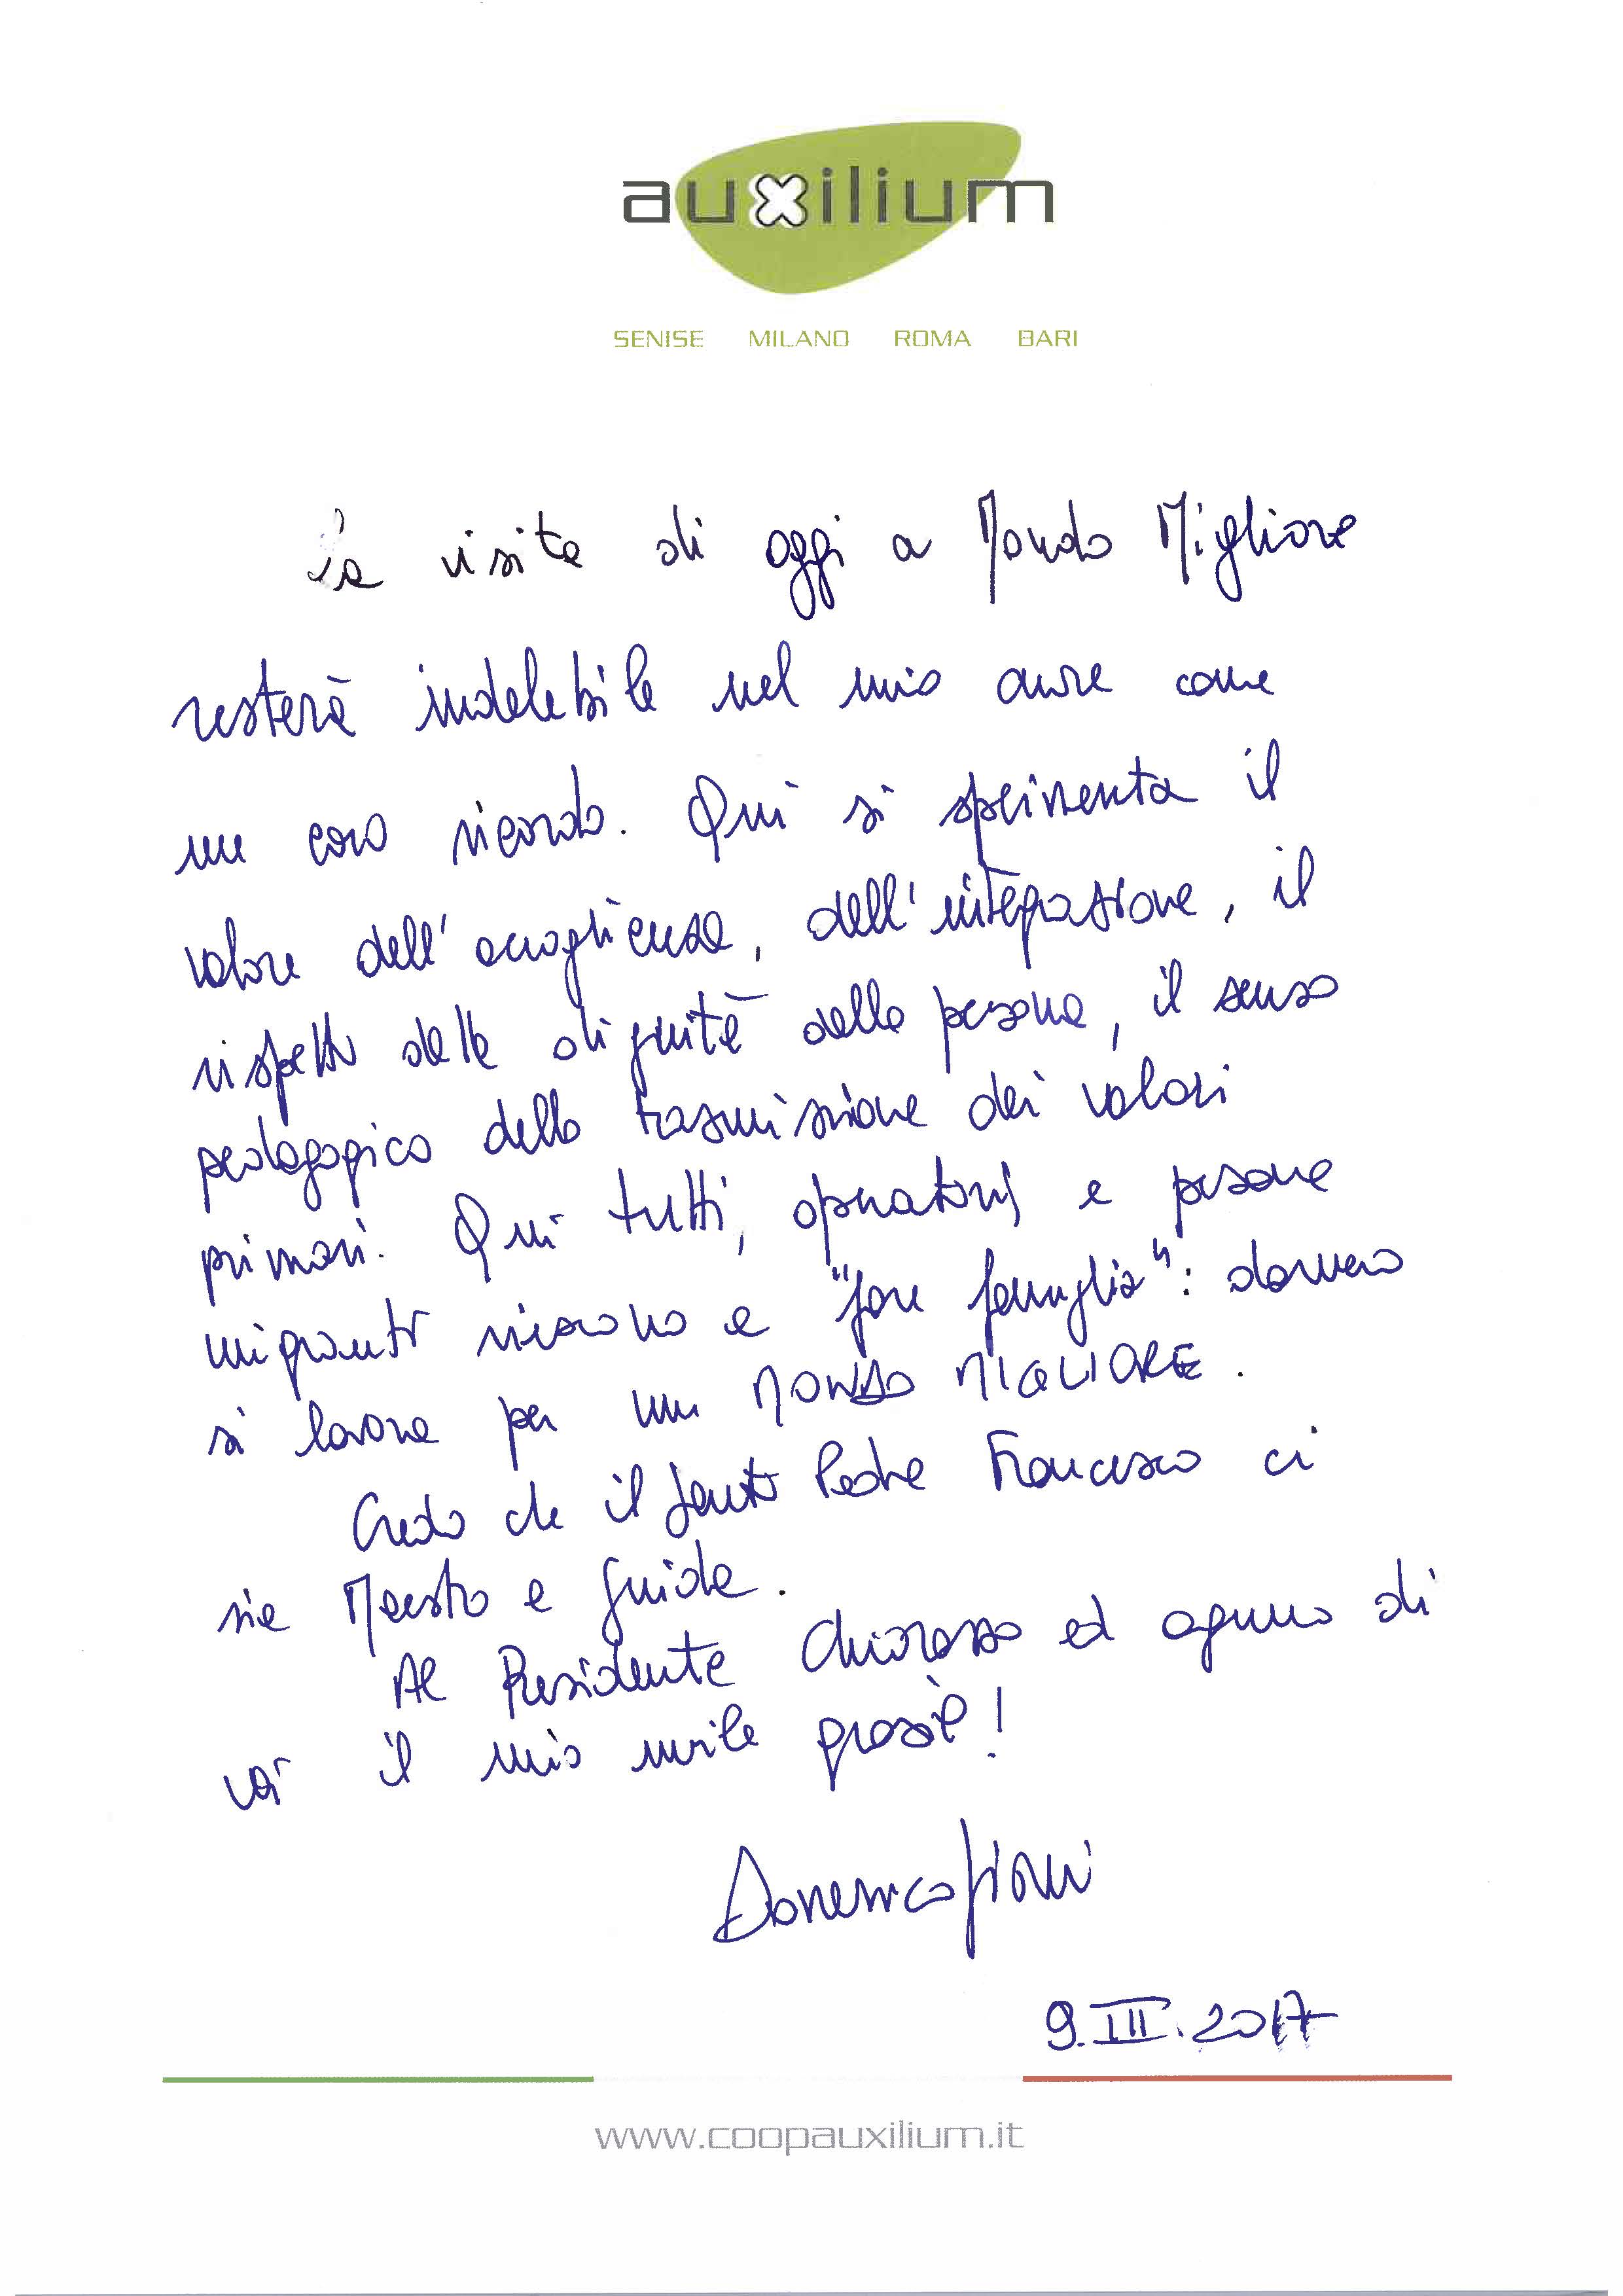 auxilium
SENISE MILANO ROMA BARI
La visita di oggi a Mondo Migliore
resterà indelebile nel mio cuore come
un caro ricordo. Qui si sperimenta il
valore dell'accoglienza, dell'integrazione, il
rispetto della dignità della persona, il senso
pedagogico della trasmissione dei valori
primari. Qui tutti, operatori e persone
migranti riescono a "fare famiglia": davvero
si lavora per un MONDO MIGLIORE.
Credo che il Santo Padre Francesco ci
sia Maestro e guida.
Al Presidente Chiorazzo ed ognuno di
voi il mio umile grazie!
9.III.2017
www.coopauxilium.it